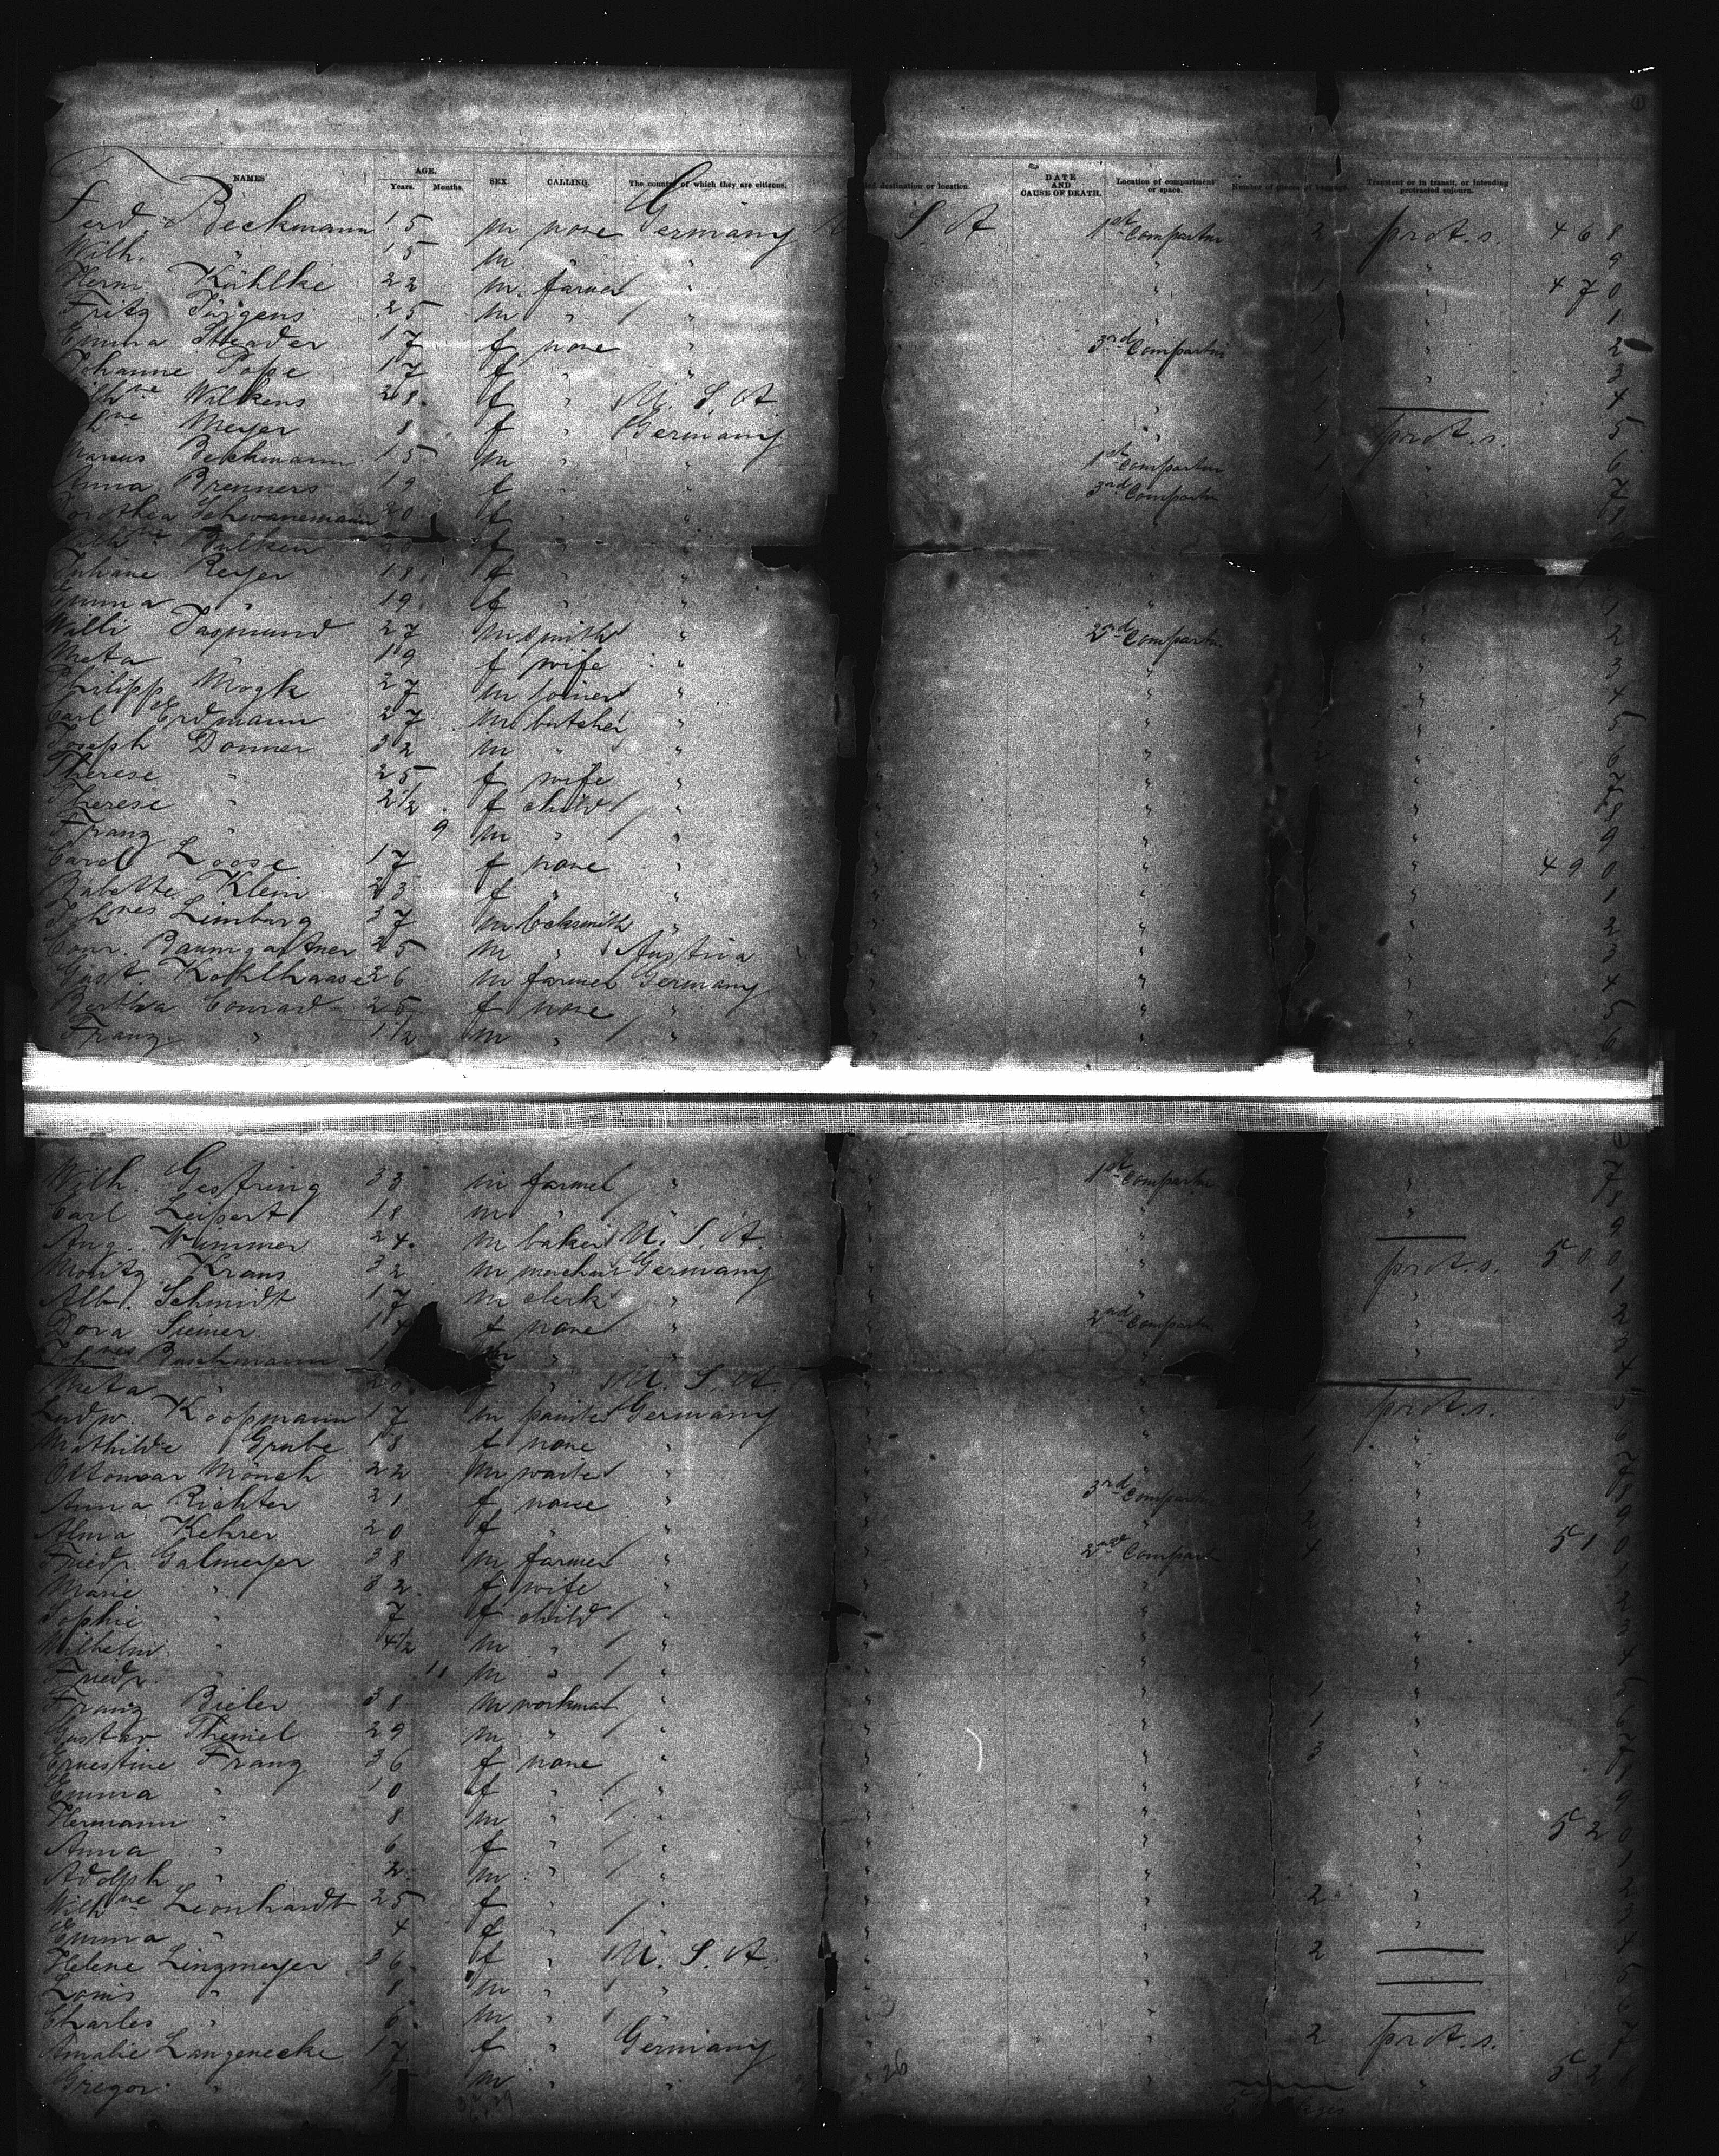 NAMES AGE. Years. Months. SEX. CALLING. The country of which they are citizens. destination or location. DATE AND CAUSE OF DEATH. Location of compartment or space. Number of pieces of baggage. Transient or in transit, or intending protracted sojourn.
Ferd. Beckmann 15 m none Germany S. A 1st Compartm 2 prot. s. 468
Wilh. " 15 m " " " " 9
Herm. Kühlke 22 m farmer " " 1 " 470
Fritz Jürgens 25 m " " " 1 " 1
Emma Stender 17 f none " 3rd Compartm 1 " 2
Johanne Pape 17 f " " " 1 " 3
Wilkens 28 f " U. S. A. " 1 — 4
Meyer 8 f " Germany " 1 prot. s. 5
Marcus Beckmann 15 m " " 1st Compartm 1 " 6
Anna Brenners 19 f " " 3rd Compartm 1 " 7
Dorothea Schwanemann 20 f "
Juliane Reyer 18 f " " "
Emma " 19 f " " "
Willi Dasmund 27 m smith " 2nd Compartm " 2
Meta " 19 f wife " " " 3
Philipp Mogk 27 m joiner " " " 4
Carl Erdmann 27 m butcher " " 1 " 5
Joseph Donner 32 m " " " 2 " 6
Therese " 25 f wife " " " 7
Therese " 2½ f child " " " 8
Franz " 9 m " " " " 9
Carol Loose 17 f none " " " 490
Babette Klein 23 f " " " " 1
Johnes Limburg 37 m locksmith " " " 2
Conr. Baumgartner 25 m " Austria " " 3
Gust. Kohlhaase 26 m farmer Germany " " 4
Bertha Conrad 25 f none " " " 5
Franz " 1½ m " " " " 6
Wilh. Gestring 33 m farmer " 1st Compartm " 7
Carl Leipert 18 m " " " " 8
Aug. Wummer 24 m baker U. S. A. " — 9
Moritz Kraus 32 m merchant Germany " prot. s. 500
Alb. Schmidt 17 m clerk " " " 1
Dora Siemer f none " 2nd Compartm " 2
Johnes Buschmann m " " " " 3
Meta " U. S. A. " — 4
Ludw. Koopmann 17 m painter Germany " prot. s. 5
Mathilde Grube 18 f none " " 1 " 6
Ottomar Mönch 22 m waiter " " 1 " 7
Anna Richter 21 f none " 3rd Compartm 1 " 8
Alma Kehrer 20 f " " " 2 " 9
Friedr. Galmeyer 38 m farmer " 2nd Compartm 4 " 510
Marie " 32 f wife " " " 1
Sophie " 7 f child " " " 2
Wilhelm " 4½ m " " " " 3
Friedr. " 11 m " " " " 4
Franz Bieler 38 m workman " " 1 " 5
Gustav Theinel 29 m " " " 1 " 6
Ernestine Franz 36 f none " " 3 " 7
Emma " 10 f " " " " 8
Hermann " 8 m " " " " 9
Anna " 6 f " " " " 520
Adolph " 2 m " " " " 1
Wilhne Leonhardt 25 f " " " 2 " 2
Emma " 4 f " " " " 3
Helene Lingmeyer 36 f " U. S. A. " 2 — 4
Louis " 8 m " " " — 5
Charles " 6 m " " " — 6
Amalie Langenecke 17 f " Germany " 2 prot. s. 7
Gregor " m " " " " 528